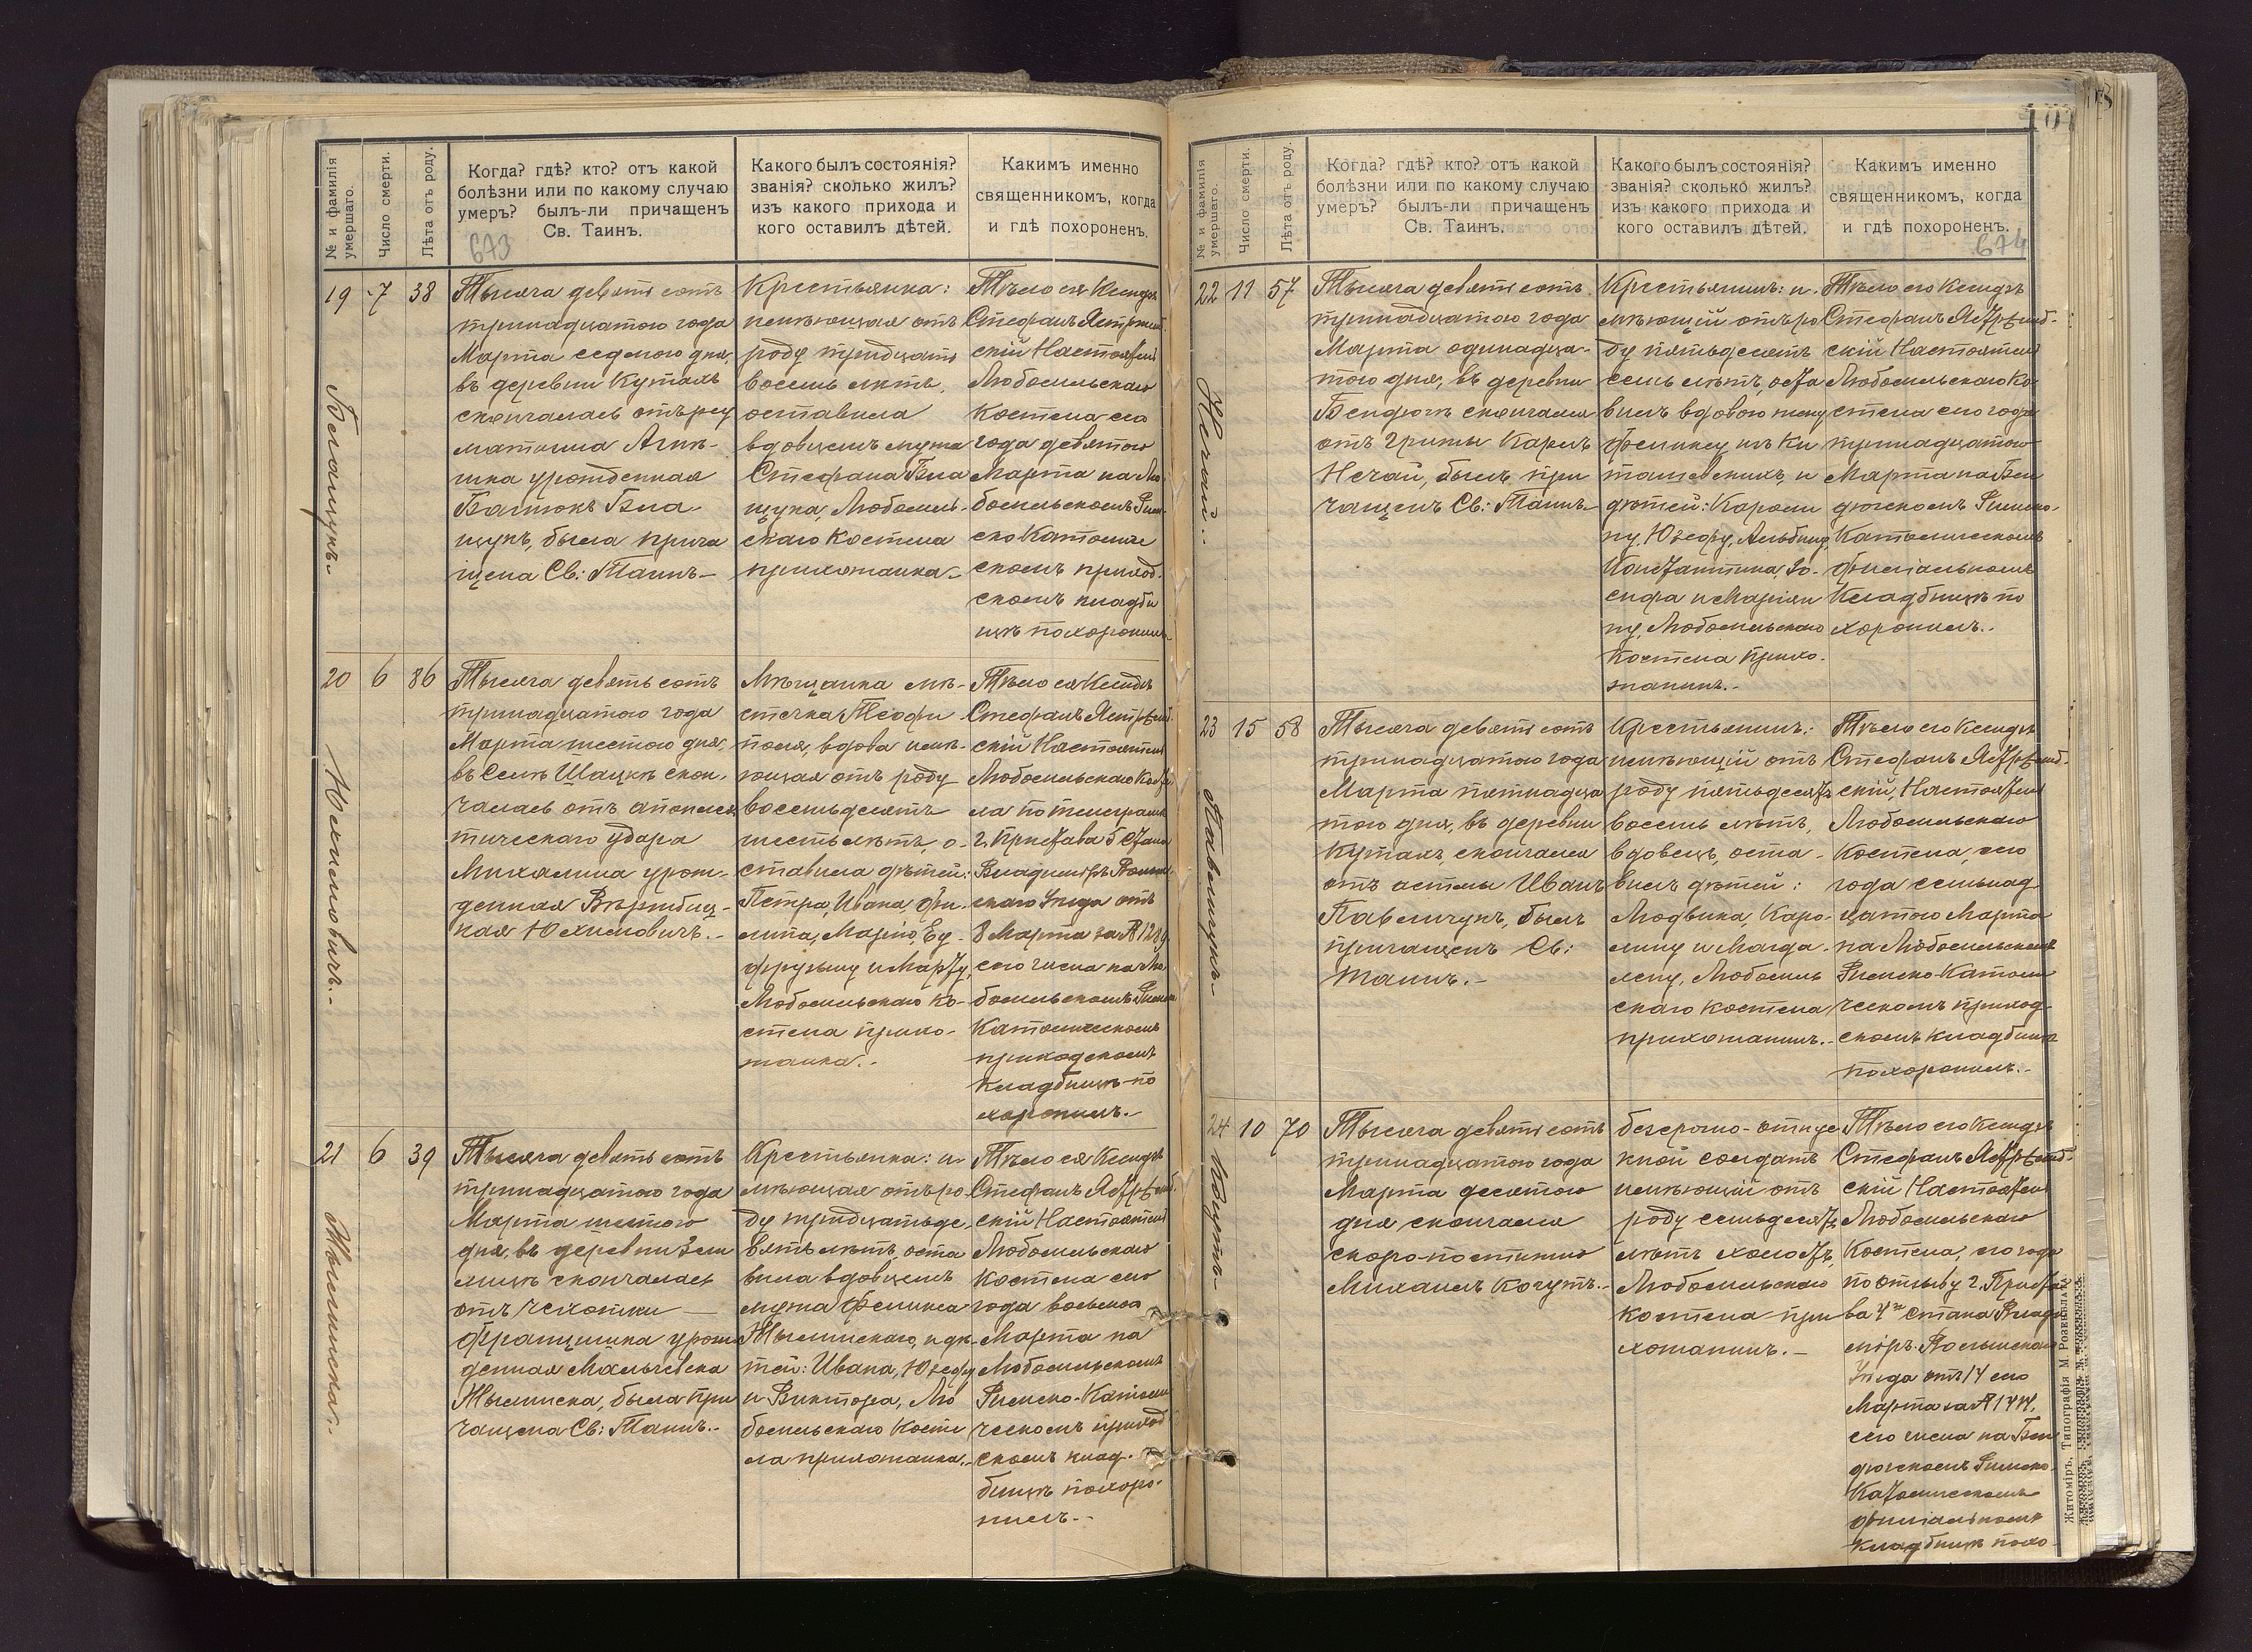 № и фамилія умершаго.
Число смерти.
Лѣта отъ роду.
Когда? гдѣ? кто? отъ какой
болѣзни или по какому случаю
умеръ? былъ-ли причащенъ
Св. Таинъ.
673
Какого былъ состоянія?
званія? сколько жилъ?
изъ какого прихода и
кого оставилъ дѣтей.
Какимъ именно
священникомъ, когда
и гдѣ похороненъ.
19
7
38
Тысяча девятьсотъ
тринадцатого года
Марта седьмого дня,
въ деревни Кутахъ
скончалась отъ рев
матизма Агнѣ-
шка урожденная
Бла-
щукъ, была прича
щена Св: Таинъ.-
Крестьянка:
имѣющая отъ
роду тридцать
восемь лѣтъ,
оставила
вдовцемъ мужа
Стефана Бла
щука, Любомль-
скаго костела
прихожанка.-
Тѣло ея Ксендзъ
Стефанъ Ястржемб-
скій Настоятель
Любомльскаго
костела сего
года девятого
Марта на Лю
бомльскомъ Рим-
ско Католиче
скомъ приход-
скомъ кладби
щѣ похоронилъ.-
20
6
86
Юхимовичъ.-
Тысяча девятьсотъ
тринадцатого года
Марта шестого дня,
въ селѣ Шацкѣ скон-
чалась отъ апоплек
тическаго удара
Михалина урож-
денная Вержбиц-
кая Юхимовичъ.-
Мѣщанка мѣ-
стечка Теофи
поля, вдова имѣ-
ющая отъ роду
восемьдесятъ
шесть лѣтъ, о-
ставила дѣтей:
Петра, Ивана, Фи-
липа, Марію, Еу-
фрузыну и Марту,
Любомльскаго ко-
стела прихо-
жанка.-
Тѣло ея Ксендзъ
Стефанъ Ястржемб-
скій Настоятель
Любомльскаго косте
ла по телеграмѣ
г. Пристава 5 Стана
Владиміръ Волын-
скаго Уѣзда отъ
8 Марта за №
сего числа на Лю
бомльскомъ Римско
Католическомъ
приходскомъ
кладбищѣ по
хоронилъ.-
21
6
39
Жылинска.-
Тысяча девятьсотъ
тринадцатого года
Марта шестого
дня, въ деревни Зем
лицѣ скончалась
отъ чахотки —
Францишка урож
денная Мальчевска
Жылинска, была при
чащена Св: Таинъ.-
Крестьянка: и-
мѣющая отъ ро-
ду тридцать де-
вять лѣтъ, оста
вила вдовцемъ
мужа Феликса
Жылинскаго, и дѣ-
тей: Ивана, Юзефу
и Виктора, Лю
бомльскаго косте
ла прихожанка.-
Тѣло ея Ксендзъ
Стефанъ Ястржемб-
скій Настоятель
Любомльскаго
костела сего
года восьмого
Марта на
Любомльскомъ
Римско-Католи
ческомъ приход
скомъ клад-
бищѣ похоро-
нилъ.-
107
№ и фамилія умершаго.
Число смерти.
Лѣта отъ роду.
Когда? гдѣ? кто? отъ какой
болѣзни или по какому случаю
умеръ? былъ-ли причащенъ
Св. Таинъ.
Какого былъ состоянія?
званія? сколько жилъ?
изъ какого прихода и
кого оставилъ дѣтей.
Какимъ именно
священникомъ, когда
и гдѣ похороненъ.
674
22
11
57
Нечай.-
Тысяча девятьсотъ
тринадцатого года
Марта одинадца-
того дня, въ деревни
Бендюгѣ скончался
отъ грипы Карлъ
Нечай, былъ при
чащенъ Св: Таинъ.-
Крестьянинъ: и-
мѣющій отъ ро
ду пятьдесятъ
семь лѣтъ, оста
вилъ вдовою жену
Феликсу изъ
и
дѣтей: Кароли
ну, Юзефу, Альбину,
Константина, Іо-
сифа и Маріян
ну, Любомльскаго
костела прихо-
жанинъ.-
Тѣло его Ксендзъ
Стефанъ Ястржемб-
скій Настоятель
Любомльскаго Ко-
стела сего года
тринадцатого
Марта на Бен
дюгскомъ Римско-
Католическомъ
филіальномъ
Кладбищѣ по
хоронилъ.-
23
15
58
Павлищукъ.-
Тысяча девятьсотъ
тринадцатого года
Марта пятнадца
того дня, въ деревни
Кутахъ, скончался
отъ астмы Иванъ
Павлищукъ, былъ
причащенъ Св:
Таинъ.-
Крестьянинъ:
имѣющій отъ
роду пятьдесятъ
восемь лѣтъ,
вдовецъ, оста-
вилъ дѣтей:
Людвика, Каро-
лину и Магда-
лену, Любомль
скаго костела
прихожанинъ.-
Тѣло его Ксендзъ
Стефанъ Ястржемб-
скій, Настоятель
Любомльскаго
Костела, сего
года семьнад
цатого Марта
на Любомльскомъ
Римско-Католи
ческомъ приход
скомъ кладбищѣ
похоронилъ.-
24
10
70
Когутъ.-
Тысяча девятьсотъ
тринадцатого года
Марта десятого
дня скончался
скоропостижно
Михаилъ Когутъ.-
безсрочно-отпус
кной солдатъ
имѣющій отъ
роду семьдесятъ
лѣтъ холостъ,
Любомльскаго
костела при
хожанинъ.-
Тѣло его Ксендзъ
Стефанъ Ястржемб-
скій Настоятель
Любомльскаго
Костела, сего года
по отзыву г. Приста
ва 4го стана Влади
міръ-Волынскаго
Уѣзда отъ 14 сего
Марта за №
сего числа на Бен
дюгскомъ Римско-
Католическомъ
филіальномъ
кладбищѣ похо-
Житоміръ, Типографія М. Розенблатъ